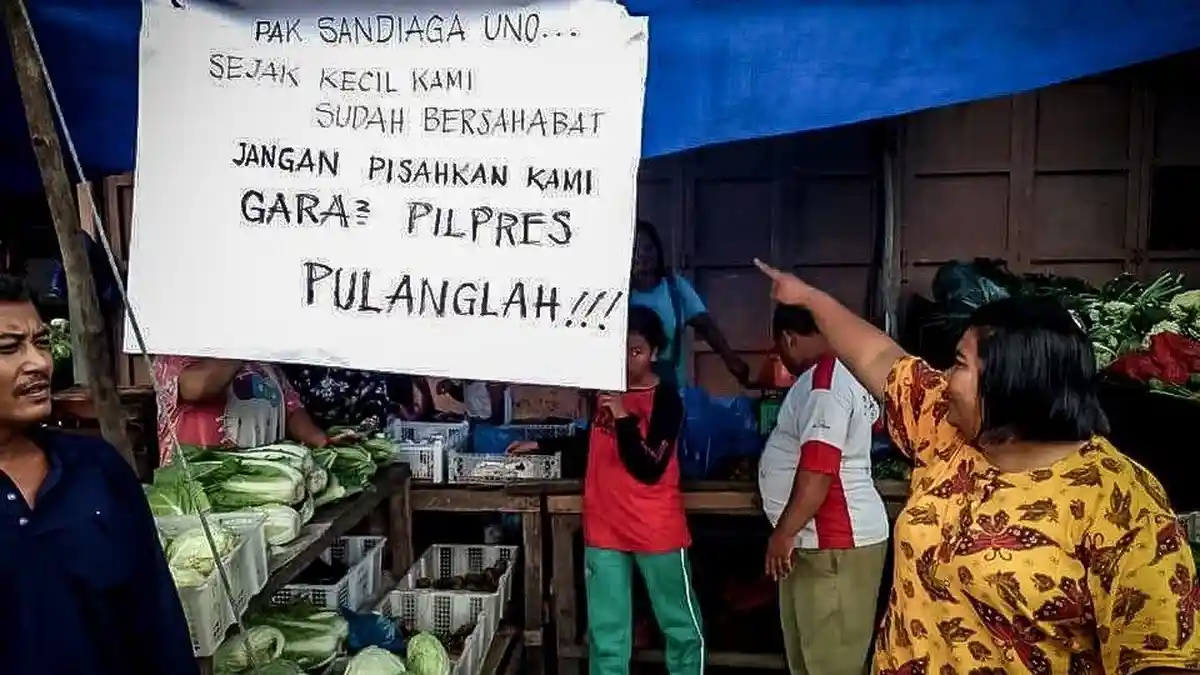 PAK SANDIAGA UNO...
SEJAK KECIL KAMI
SUDAH BERSAHABAT
JANGAN PISAHKAN KAMI
GARA² PILPRES
PULANGLAH!!!